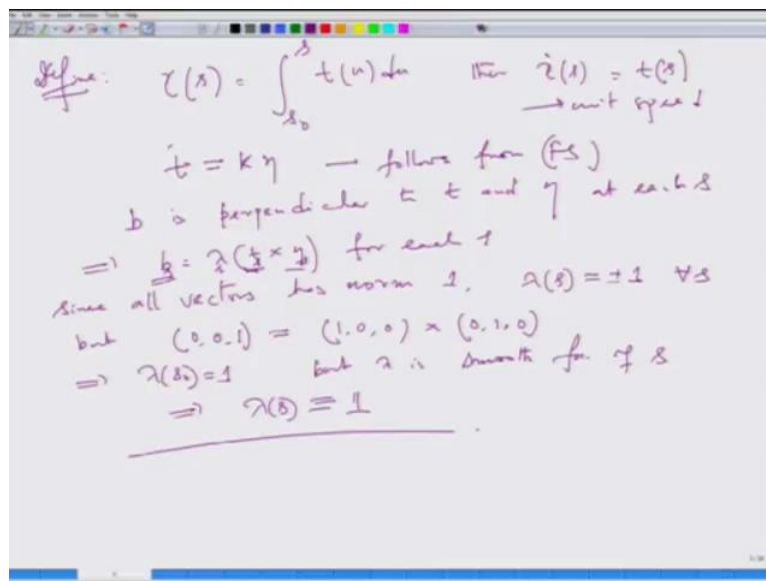 Define: γ(s) = ∫_{s₀}^{s} t(u) du then γ̇(s) = t(s)
→ unit speed
ṫ = κ η — follows from (FS)
b is perpendicular to t and η at each s
⇒ b_s = λ_s (t_s × η_s) for each s
since all vectors has norm 1, λ(s) = ±1 ∀s
but (0,0,1) = (1,0,0) × (0,1,0)
⇒ λ(s₀) = 1 but λ is smooth fn of s
⇒ λ(s) ≡ 1